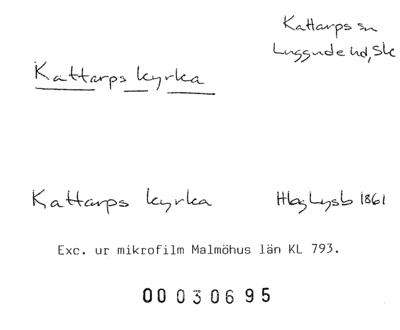 Kattarps sn
Luggude hd, Sk
Kattarps kyrka
Kattarps kyrka
Hbg Lysb 1861
Exc. ur mikrofilm Malmöhus län KL 793.
00030695